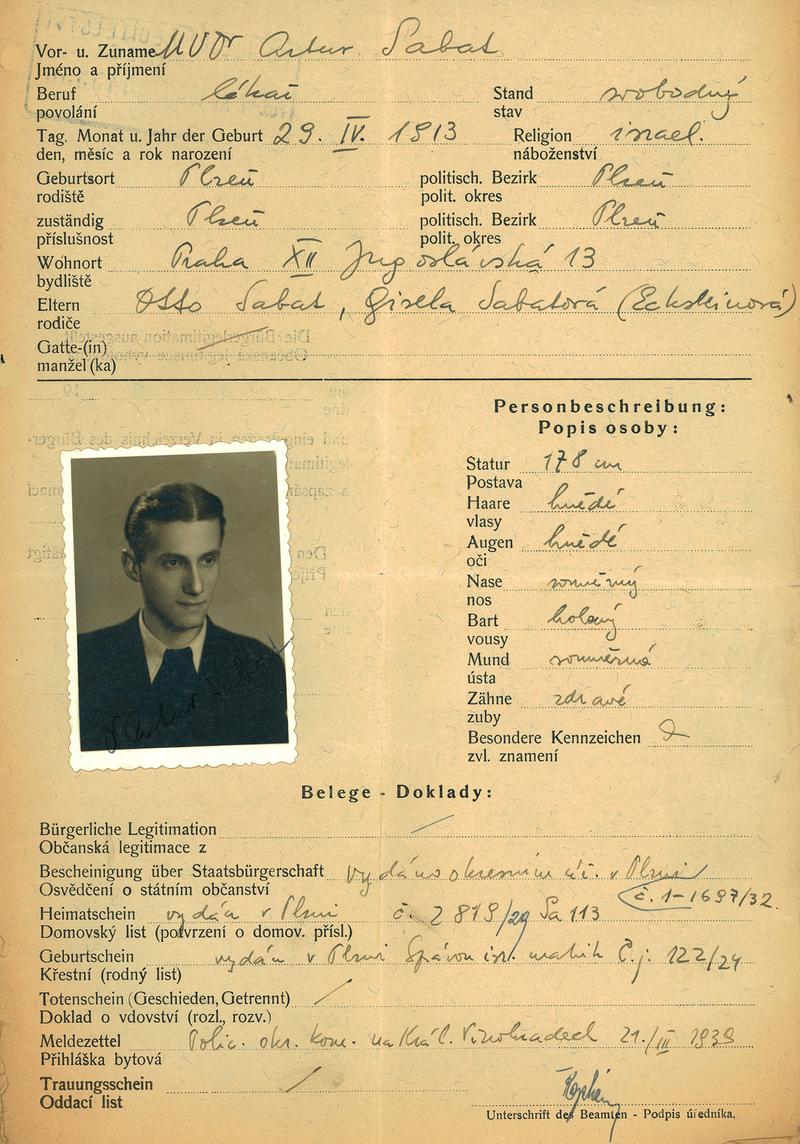 Vor- u. Zuname MUDr Artur Sabat
Jméno a příjmení
Beruf lékař Stand svobodný
povolání stav
Tag. Monat u. Jahr der Geburt 29. IV. 1913 Religion israel.
den, měsíc a rok narození náboženství
Geburtsort Plzeň politisch. Bezirk Plzeň
rodiště polit. okres
zuständig Plzeň politisch. Bezirk Plzeň
příslušnost polit. okres
Wohnort Praha XII Jugoslávská 13
bydliště
Eltern Otto Sabat, Gisela Sabatová (Ecksteinová)
rodiče
Gatte-(in)
manžel (ka)
Personbeschreibung:
Popis osoby:
Statur 178 cm
Postava
Haare hnědé
vlasy
Augen hnědé
oči
Nase souměrný
nos
Bart holený
vousy
Mund souměrná
ústa
Zähne zdravé
zuby
Besondere Kennzeichen
zvl. znamení
Dr Artur Sabat
Belege - Doklady:
Bürgerliche Legitimation
Občanská legitimace z
Bescheinigung über Staatsbürgerschaft vydáno okresním úř. v Plzni
Osvědčení o státním občanství č. 1-1697/32.
Heimatschein vydán v Plzni č. 2819/29 Sa 113
Domovský list (potvrzení o domov. přísl.)
Geburtschein vydán v Plzni Správou isr. matrik Č.j. 122/24
Křestní (rodný list)
Totenschein (Geschieden, Getrennt)
Doklad o vdovství (rozl., rozv.)
Meldezettel Polic. okr. kom. na Král. Vinohradech 21./III 1939
Přihláška bytová
Trauungsschein
Oddací list
Unterschrift des Beamten - Podpis úředníka.